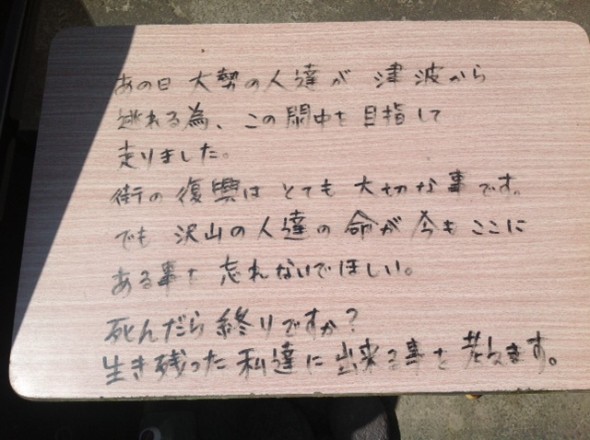 あの日 大勢の人達が 津波から
逃れる為、この閖中を目指して
走りました。
街の復興はとても大切な事です。
でも沢山の人達の命が今もここに
ある事を忘れないでほしい。
死んだら終りですか?
生き残った私達に出来る事を考えます。